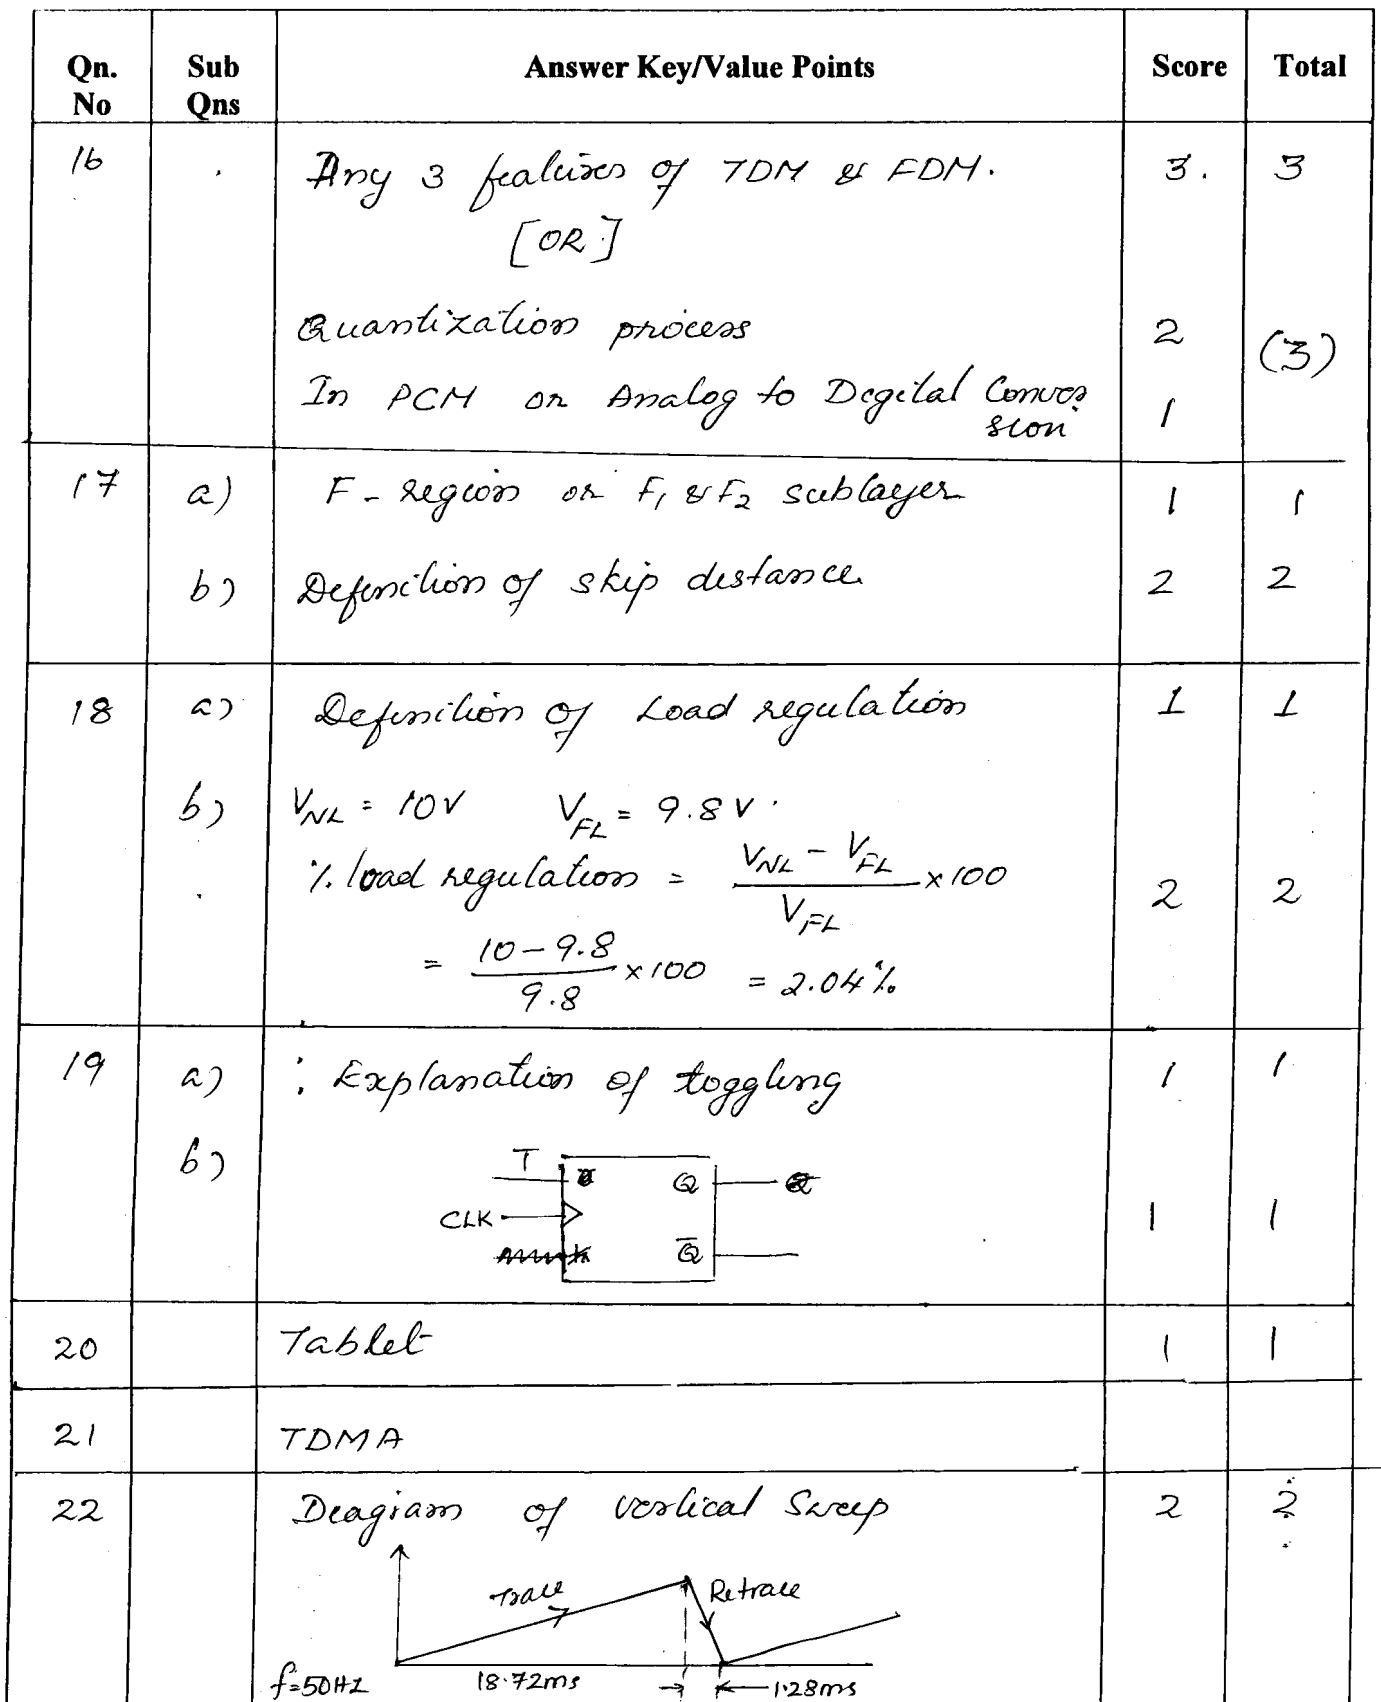 Qn. No Sub Qns Answer Key/Value Points Score Total
16 Any 3 features of TDM & FDM. 3. 3
[OR]
Quantization process 2 (3)
In PCM or Analog to Digital Conver
sion 1
17 a) F-region or F1 & F2 sublayer 1 1
b) Definition of skip distance 2 2
18 a) Definition of Load regulation 1 1
b) VNL = 10V VFL = 9.8V
% load regulation = (VNL - VFL)/VFL × 100 2 2
= (10 - 9.8)/9.8 × 100 = 2.04%
19 a) : Explanation of toggling 1 1
b) T Q
CLK 1 1
Q̅
20 Tablet 1 1
21 TDMA
22 Diagram of vertical Sweep 2 2
Trace Retrace
f=50HZ 18.72ms 1.28ms